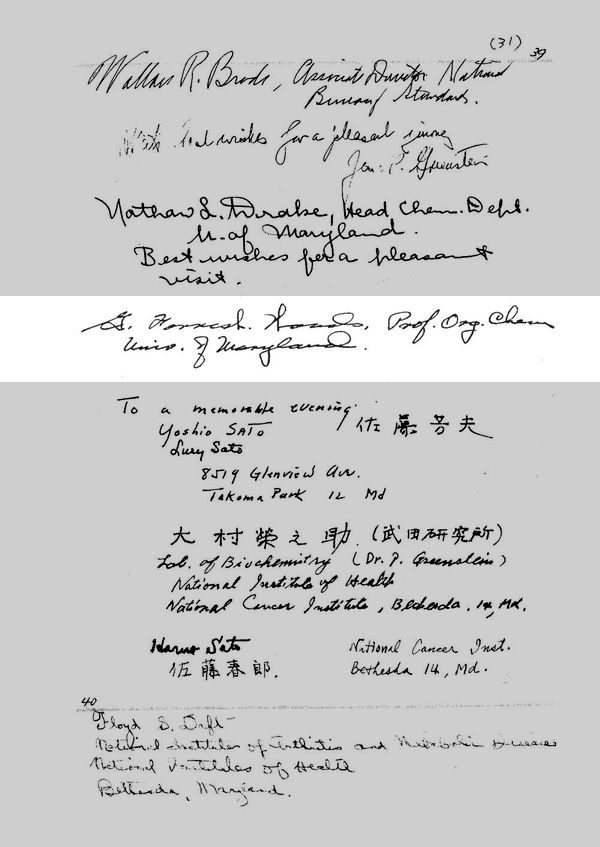 (31)
39
Wallace R. Brode, Associate Director National
Bureau of Standards.
With best wishes for a pleasant
Nathan L. Drake, Head Chem. Dept.
U. of Maryland.
Best wishes for a pleasant
visit.
G. Forrest Woods, Prof. Org. Chem
Univ. of Maryland.
To a memorable evening
Yoshio SATO 佐藤芳夫
Lucy Sato
8519 Glenview Av.
Takoma Park 12 Md
大村榮之助 (武田研究所)
Lab. of Biochemistry (Dr. J. Greenstein)
National Institute of Health
National Cancer Institute, Bethesda. 14, Md.
Haruo Sato National Cancer Inst.
佐藤春郎. Bethesda 14, Md.
40
Floyd S. Daft
National Institutes of Arthritis and Metabolic Diseases
National Institutes of Health
Bethesda, Maryland.